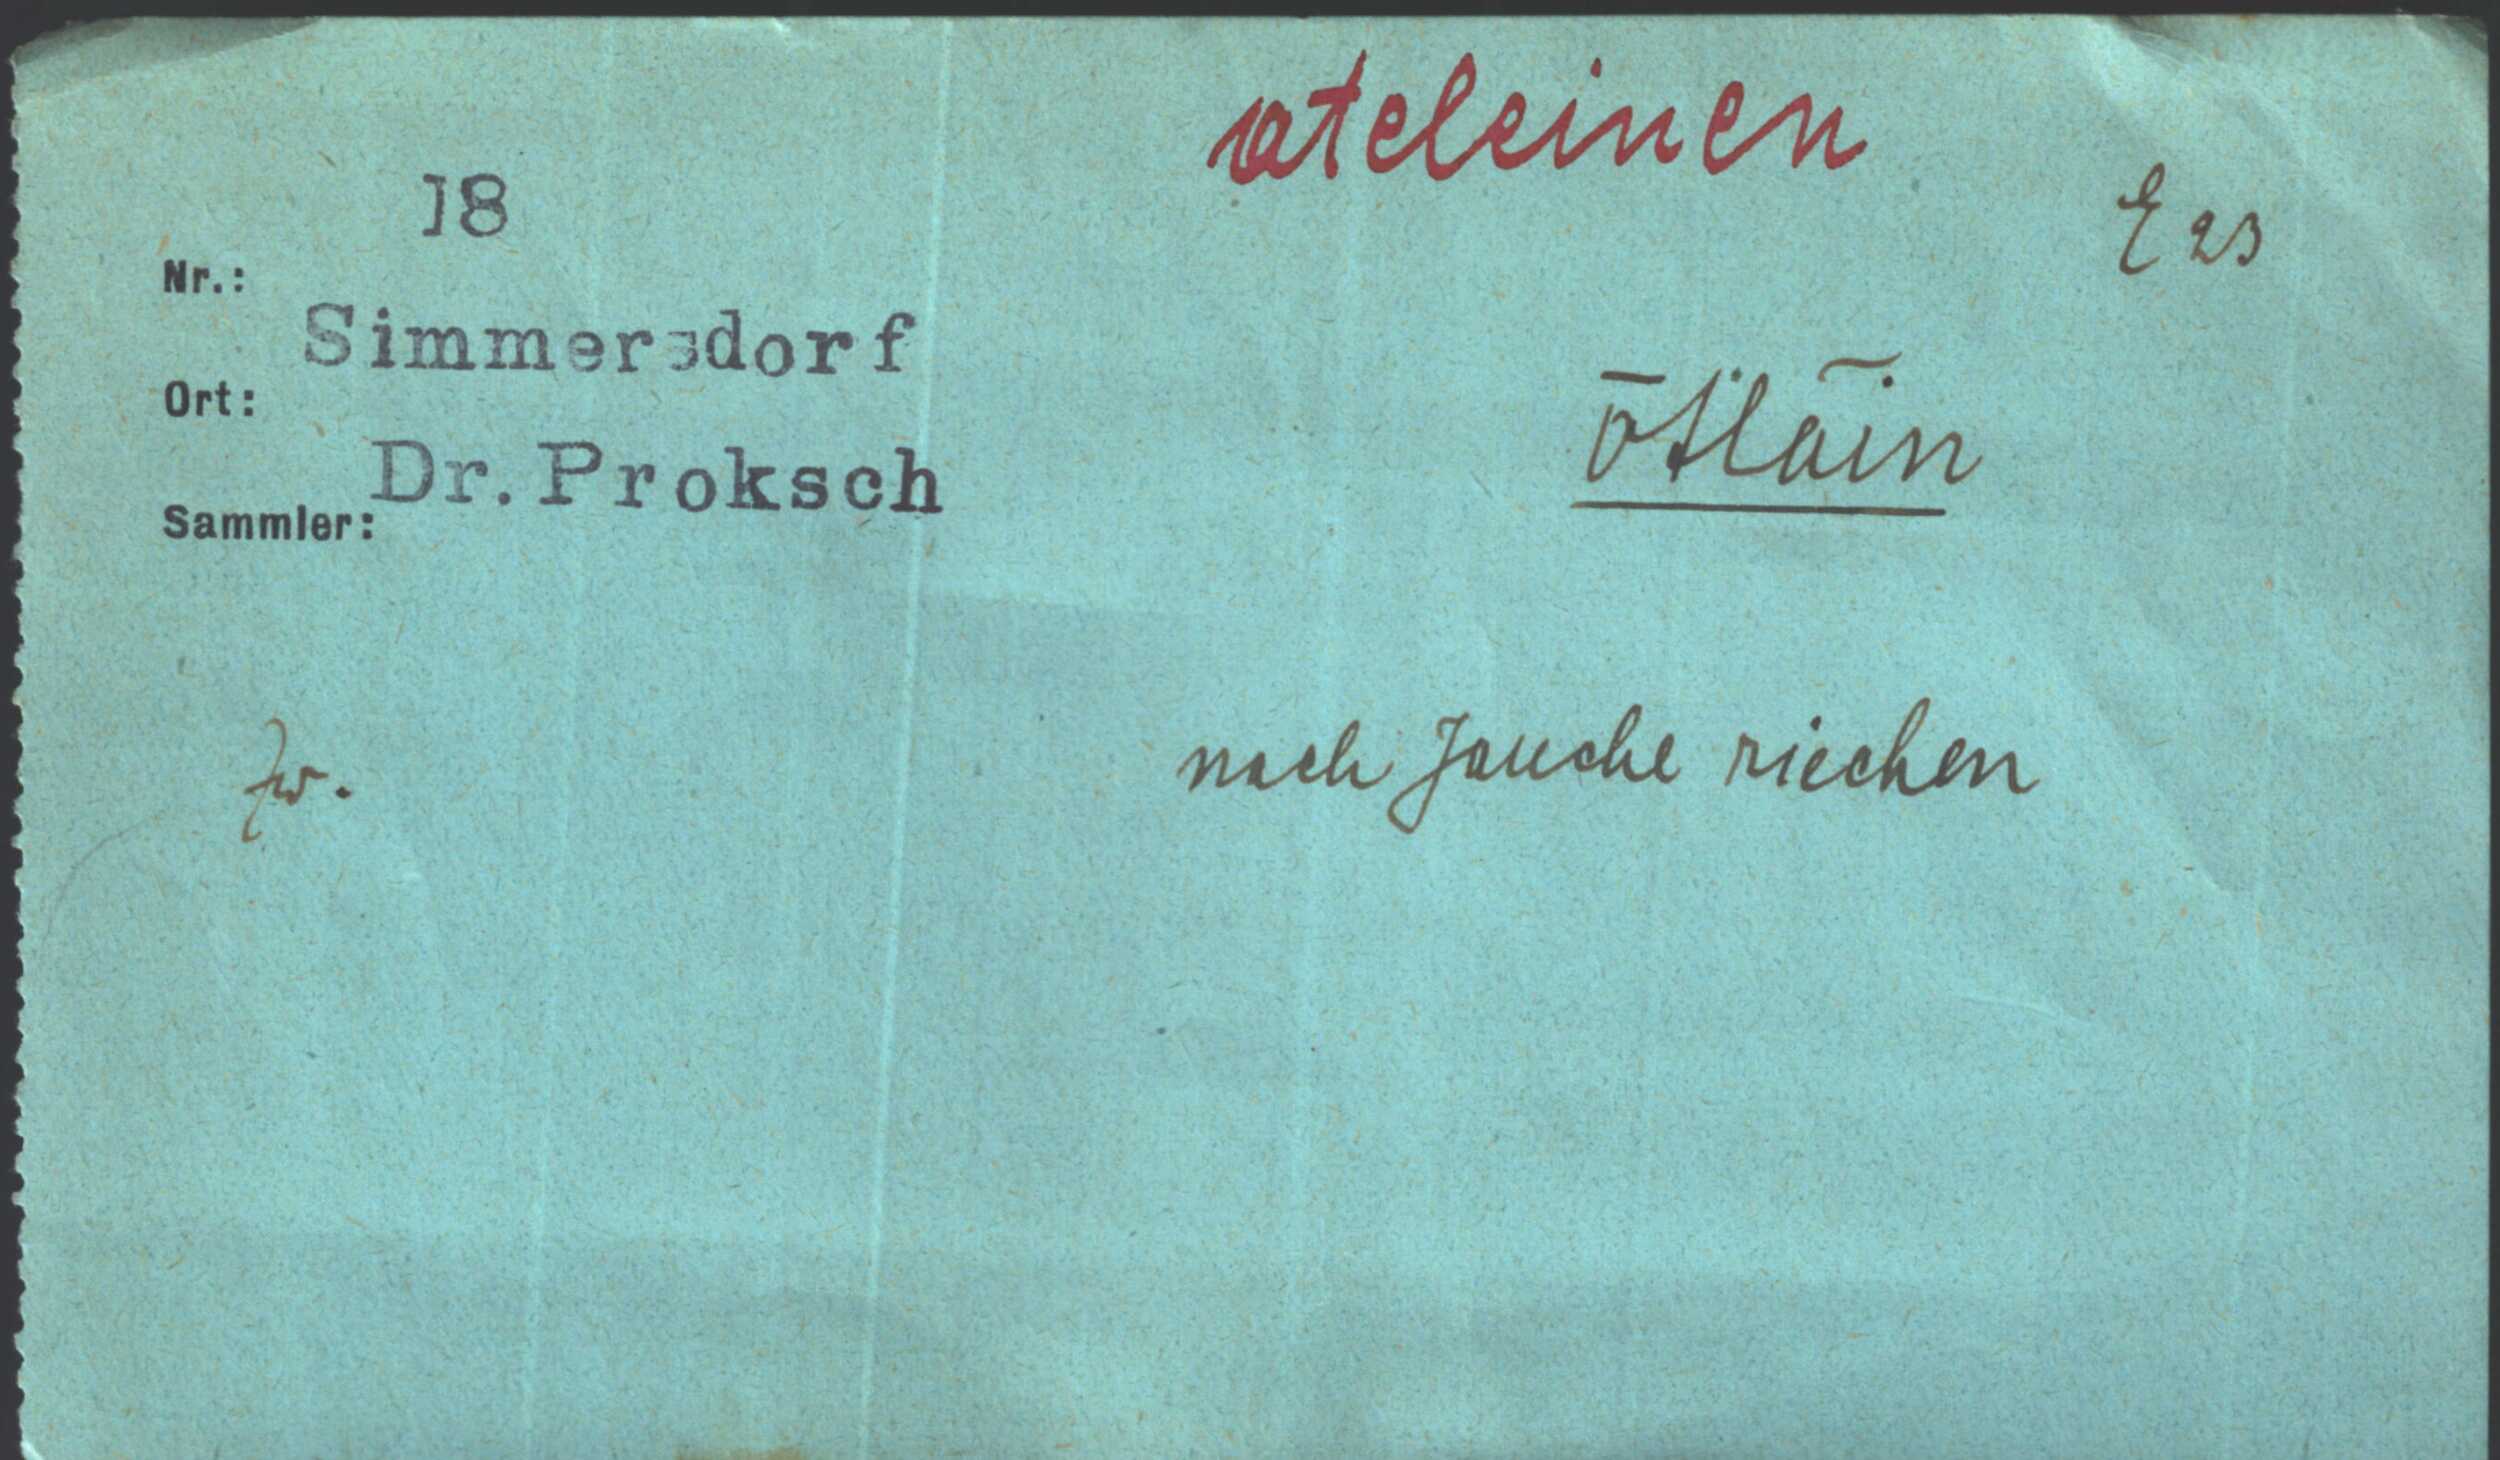 ateleinen
18
E 23
Nr.:
Simmersdorf
Ort:
ōtla͞in
Dr. Proksch
Sammler:
nach Jauche riechen